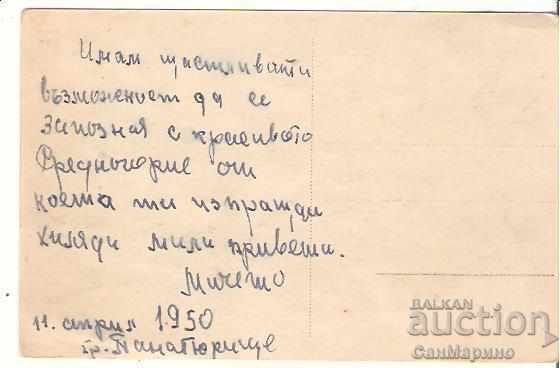 Имам щастливати
възможност да се
запозная с красивото
Средногорие от
което ти изпращи
хиляди мили привети.
Мичето
11. април 1950
гр. Панагюрище
BALKAN
auction
СанМарино